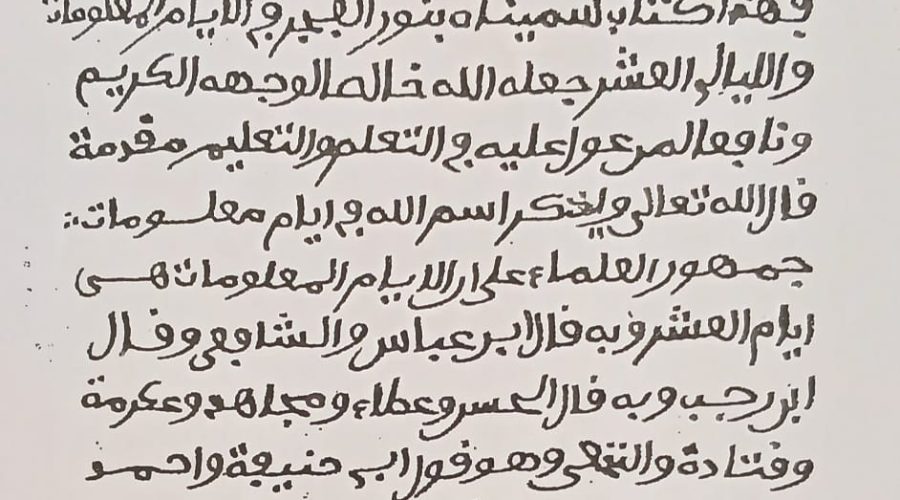 فهذا كتاب سميناه بنور الفجر في الايام المعلومات
والليالي العشر جعله الله خالصا لوجهه الكريم
ونافعا لمن عول عليه في التعلم والتعليم مقدمة
قال الله تعالى ويذكر اسم الله في ايام معلومات
جمهور العلماء على ان الايام المعلومات هي
ايام العشر وبه قال ابن عباس والشافعي وقال
ابن رجب وبه قال الحسن وعطاء ومجاهد وعكرمة
وقتادة والنخعي وهو قول ابي حنيفة واحمد